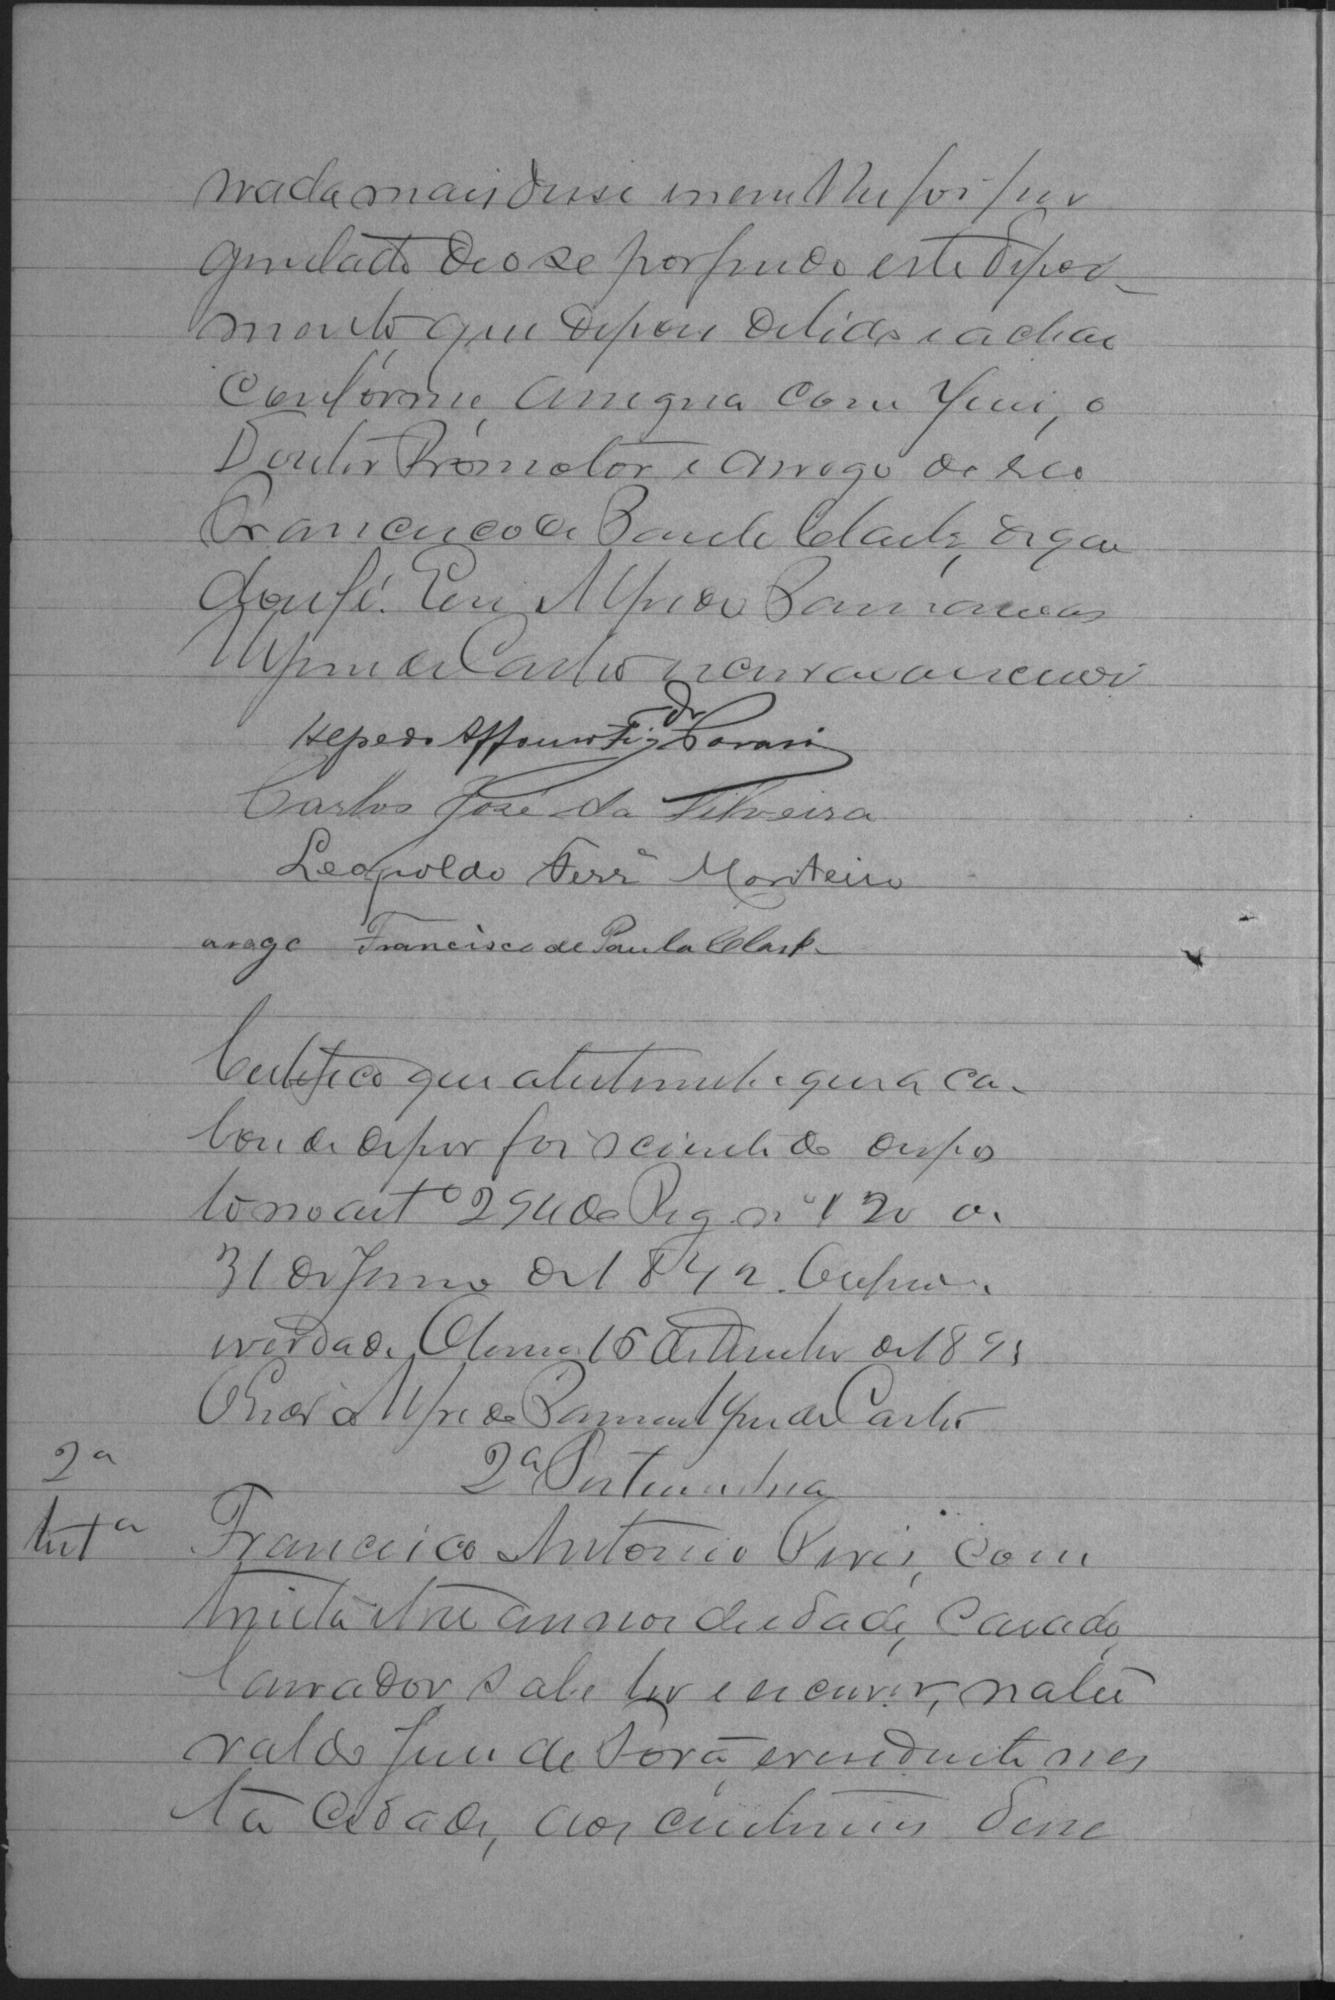 nada mais disse nem lhe foi per
guntado deo se por findo este depoi-
mento que depois de lido e achar
conforme, assigna com Juiz, o
Doutor Promotor e a rogo do réo
Francisco de Paula Clark, do que
dou fé. Eu, Alfredo
de Castro escrivão escrevi
Carlos José da Silveira
Leopoldo Ferrª Monteiro
arogo Francisco de Paula Clark
Certifico que a testemunha que aca-
bou de depor foi sciente do dispos
to no artº 294 do Reg nº 120 de
31 de Janrº de 1842. O referido é
verdade. 16 de Setembro de 1893
O Escrivão Alfredo de Castro
2ª Testemunha
2ª
testª
Francisco Antonio Pires, com
trinta e tres annos de idade, casado,
lavrador sabe ler e escrever, natu
ral de Juiz de Fóra, e residente nes
ta Cidade, aos costumes disse